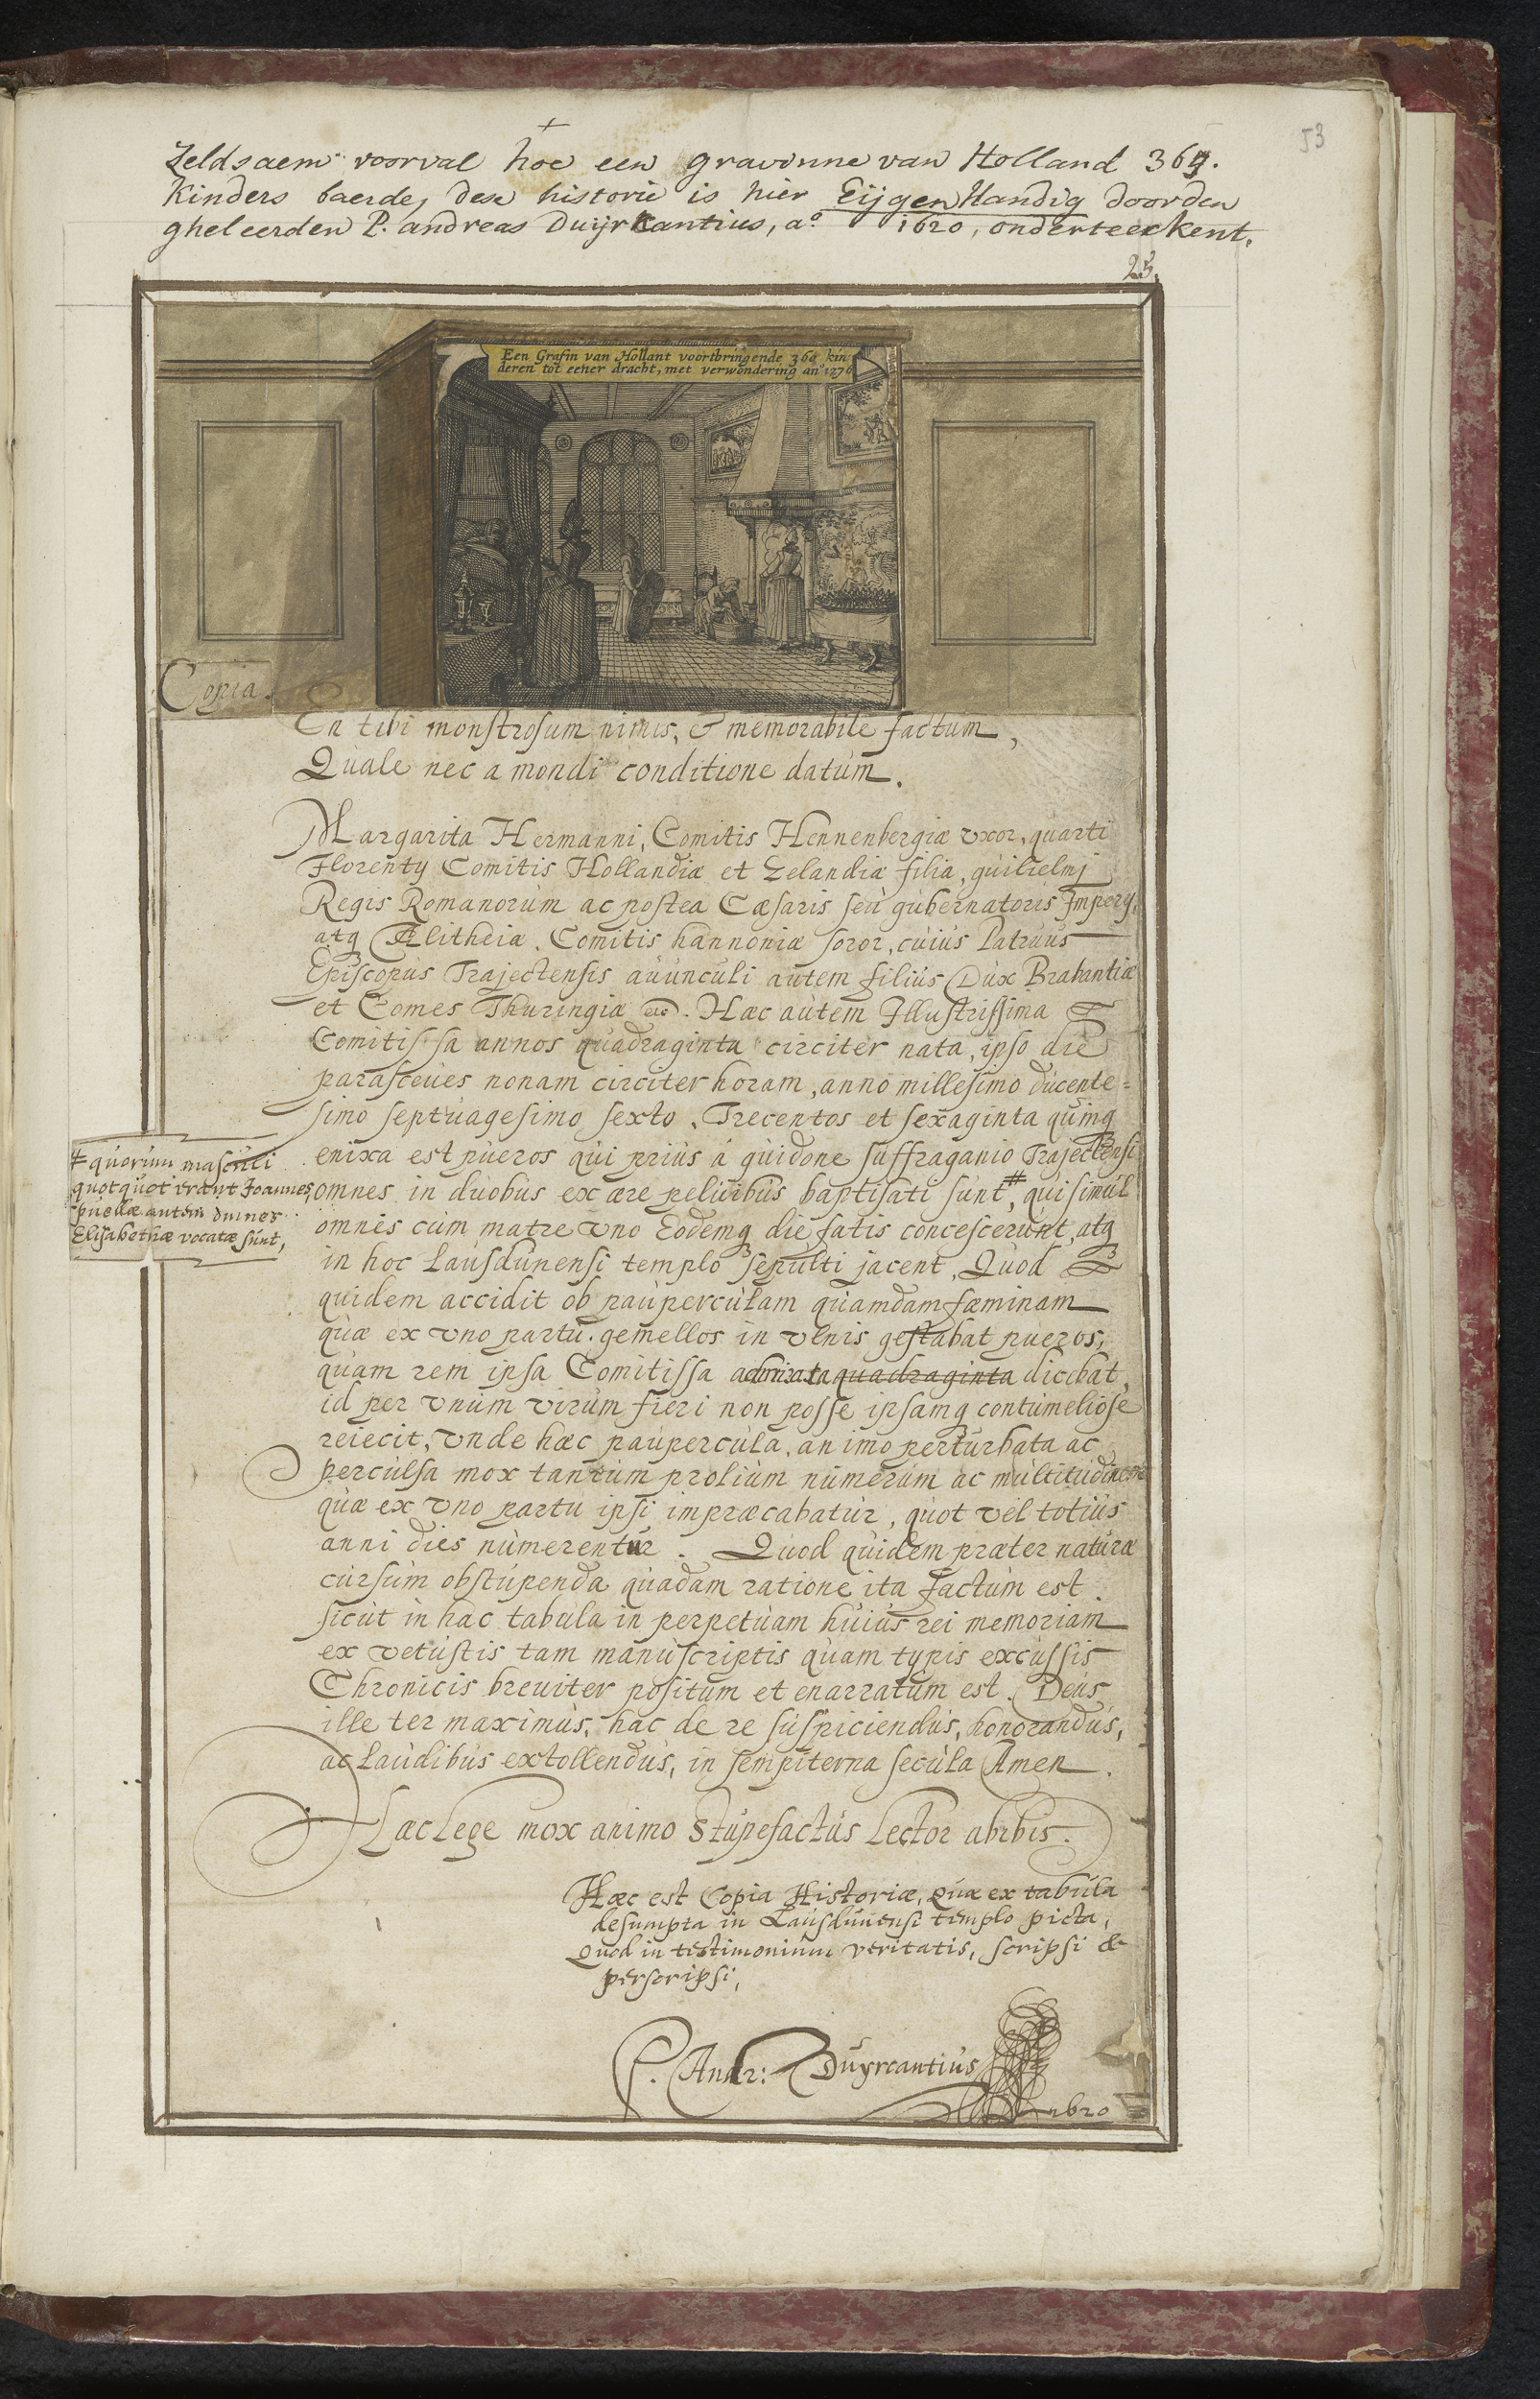 53
Zeldsaem voorval hoe een gravinne van Holland 365.
Kinders baerde, dese historie is hier Eijgen Handig doorden
gheleerden P. andreas Duijrkantius, aº 1620, onderteekent.
25.
Een Grafin van Hollant voortbringende 364 kin-
deren tot eener dracht, met verwondering anº 1276
Copia.
En tibi monstrosum nimis, & memorabile factum,
Quale nec a mondi conditione datum.
Margarita Hermanni, Comitis Hennenbergiæ uxor, quarti
Florentij Comitis Hollandiæ et Zelandiæ filia, guilielmi
Regis Romanorum ac postea Cæsaris seu gubernatoris Imperij,
atq Ælitheiæ. Comitis hannoniæ soror, cuius Patruus
Episcopus Trajectensis auunculi autem filius Dux Brabantiæ
et Comes Thuringiæ etc. Hæc autem Illustrissima
Comitissa annos quadraginta circiter nata, ipso die
parasceues nonam circiter horam, anno millesimo ducente=
simo septuagesimo sexto. Trecentos et sexaginta quinq
enixa est pueros qui prius á guidone suffraganio Trajectensi
omnes in duobus ex ære peluibus baptisati sunt,# qui simul
# quorum masculi
quotquot erant Joannes
puellæ autem omnes
Elisabethæ vocatæ sunt,
omnes cum matre uno Eodemq die fatis concescerunt, atq
in hoc Lausdunensi templo sepulti jacent. Quod
quidem accidit ob pauperculam quamdam fæminam
quæ ex uno partu. gemellos in ulnis gestabat pueros,
quam rem ipsa Comitissa admirata quadraginta dicebat,
id per unum virum fieri non posse ipsamq contumeliose
reiecit, unde hæc paupercula, animo perturbata ac
perculsa mox tantum prolium numerum ac multitudinem
quæ ex uno partu ipsi impræcabatur, quot vel totius
anni dies numerentur. Quod quidem præter naturæ
cursum obstupenda quadam ratione ita factum est
sicut in hac tabula in perpetuam huius rei memoriam
ex vetustis tam manuscriptis quam typis excussis
Chronicis breuiter positum et enarratum est. Deus
ille ter maximus, hac de re suspiciendus, honorandus,
ac laudibus extollendus, in sempiterna secula Amen.
Hæc lege mox animo stupefactus Lector abibis.
Hæc est Copia Historiæ, Quæ ex tabula
desumpta in Lausdunensi templo picta,
Quod in testimonium veritatis, scripsi &
perscripsi,
P. Andr: Duyrcantius
1620